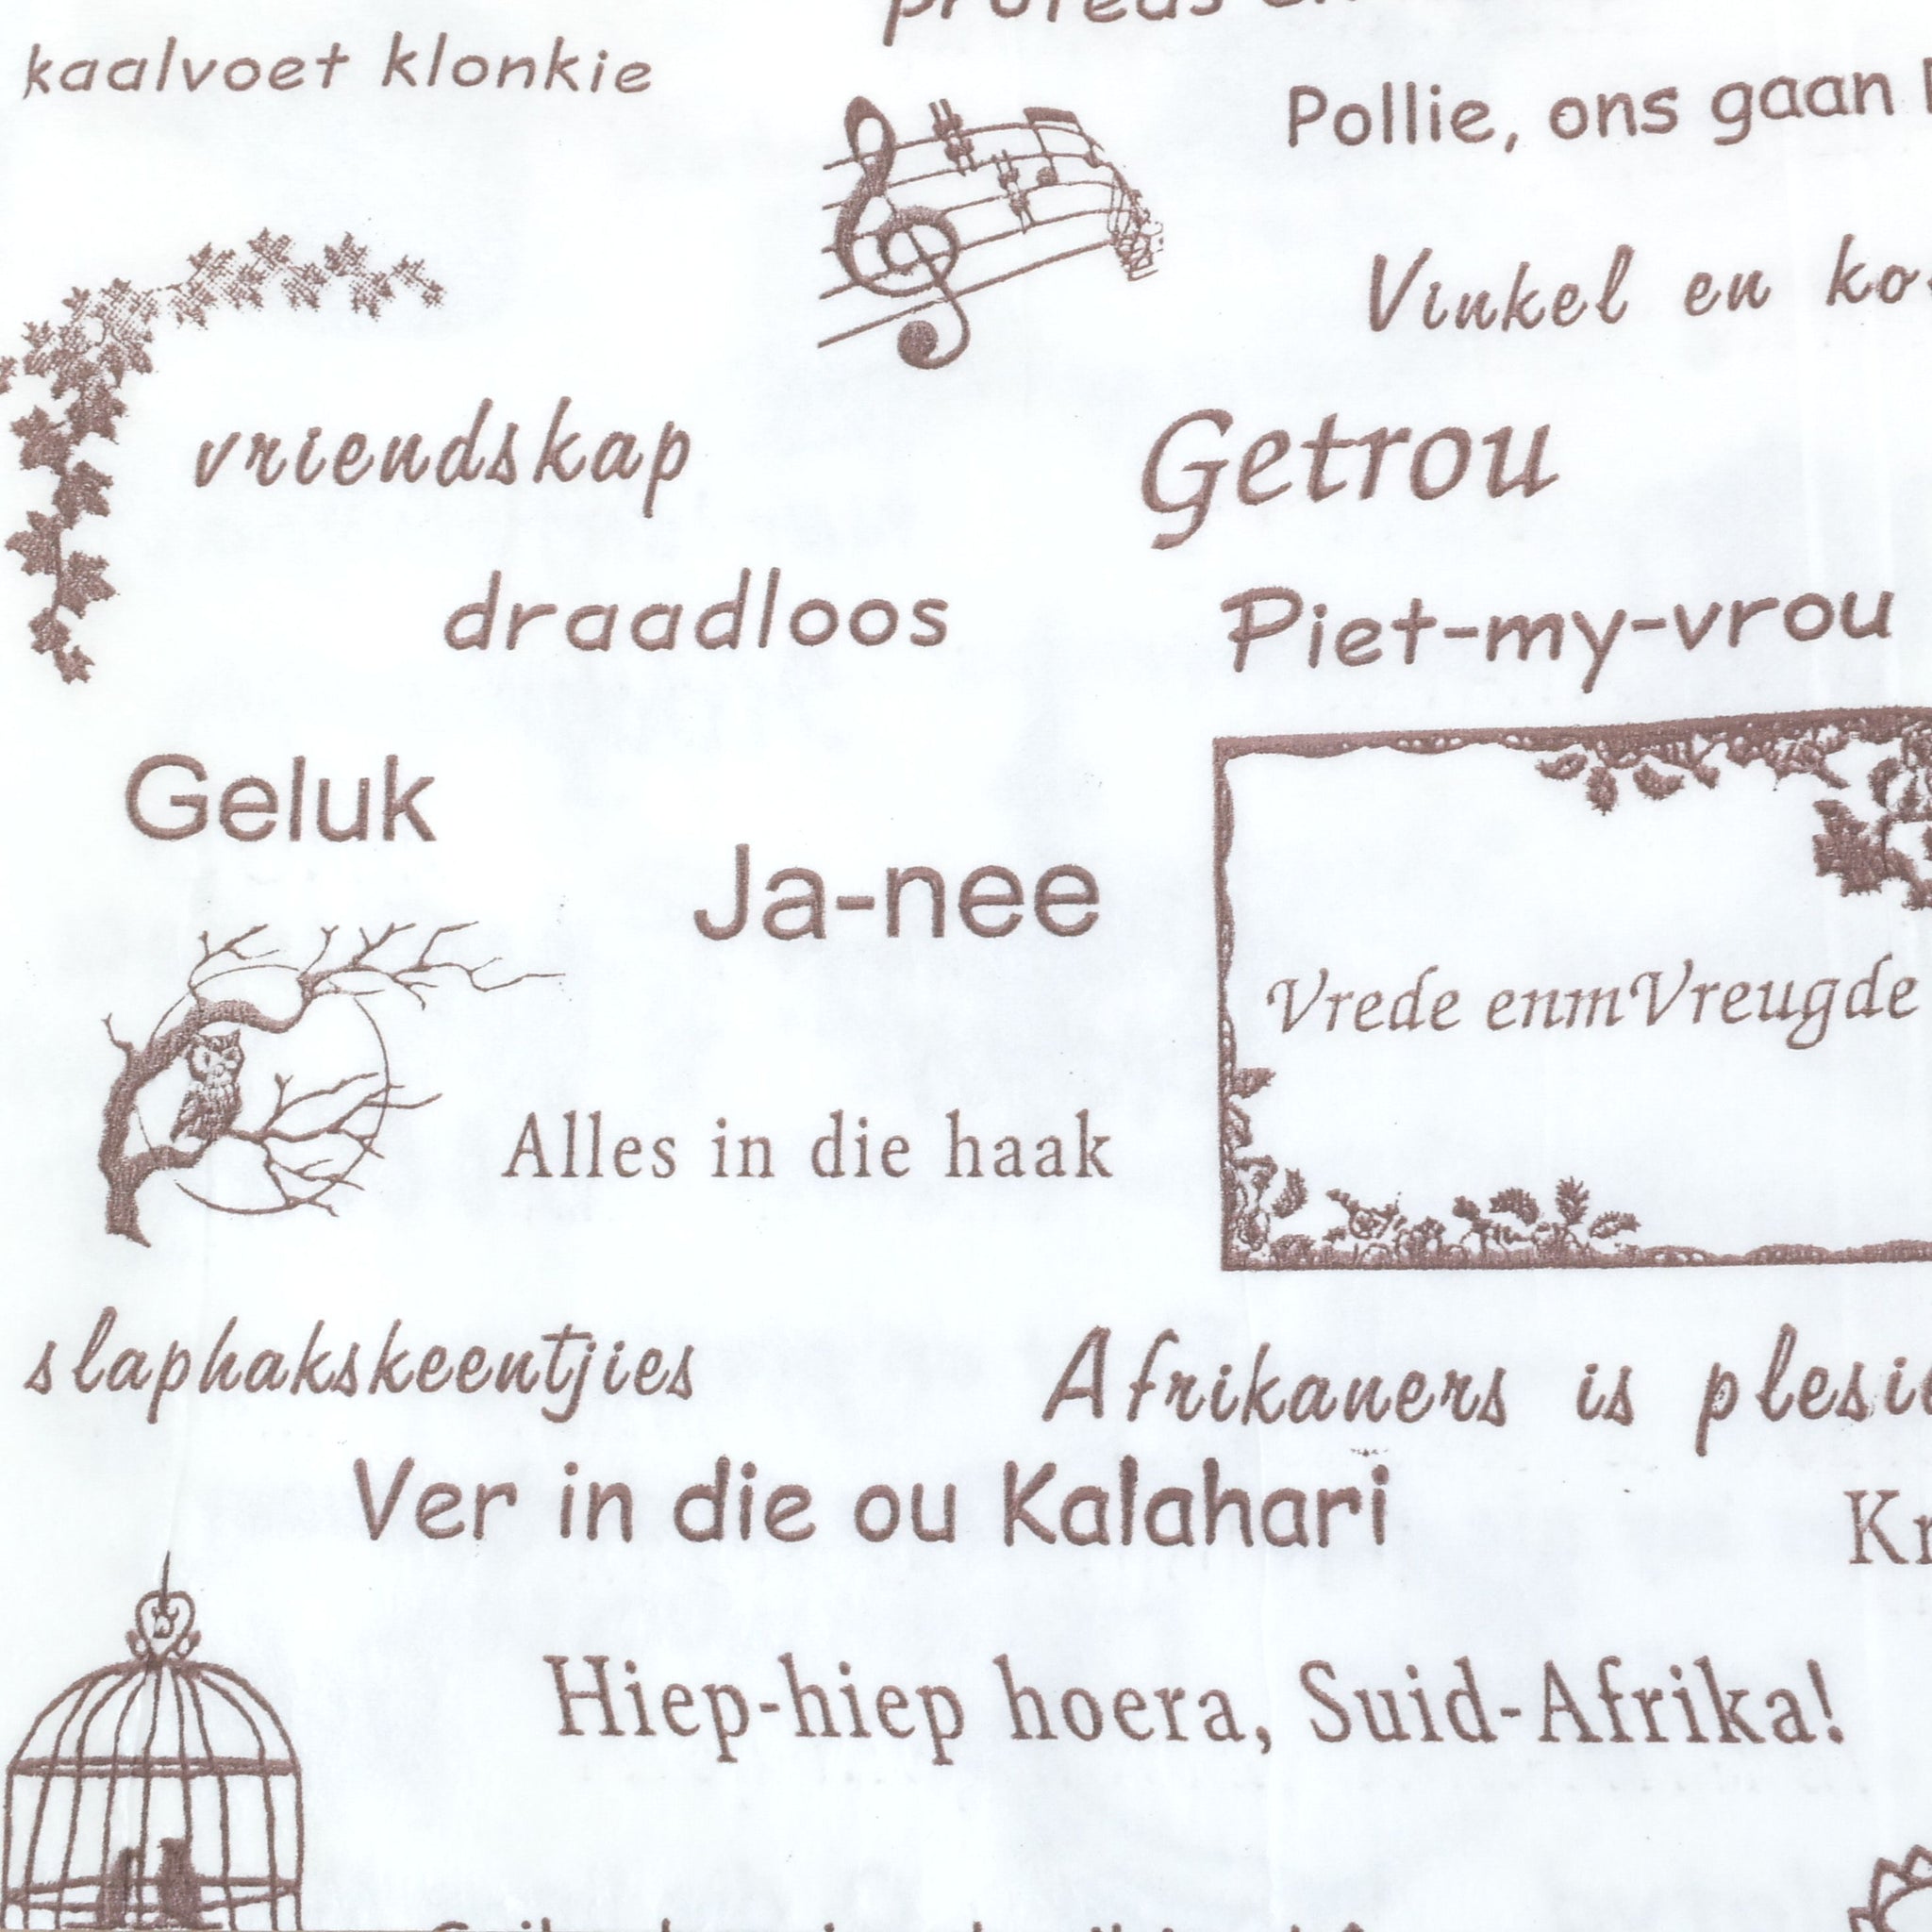 proteas
kaalvoet klonkie
Pollie, ons gaan
Vinkel en
vriendskap
Getrou
draadloos
Piet-my-vrou
Geluk
Ja-nee
Vrede enmVreugde
Alles in die haak
slaphakskeentjies
Afrikaners is
Ver in die ou Kalahari
Hiep-hiep hoera, Suid-Afrika!